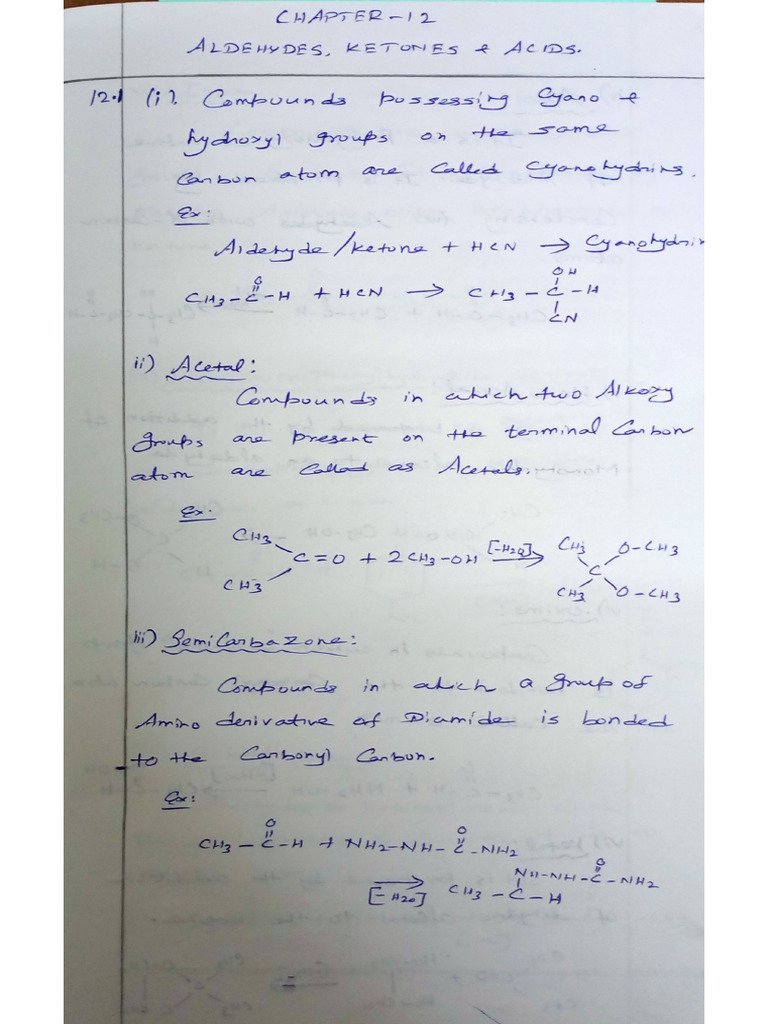 CHAPTER-12
ALDEHYDES, KETONES & ACIDS.
12.1 (i). Compounds possessing Cyano &
hydroxyl groups on the same
Carbon atom are called Cyanohydrins.
Ex:
Aldehyde/ketone + HCN → Cyanohydrin
O OH
CH3-C-H + HCN → CH3-C-H
CN
ii) Acetal:
Compounds in which two Alkoxy
groups are present on the terminal Carbon
atom are called as Acetals.
Ex.
CH3 [-H2O] CH3 O-CH3
C=O + 2CH3-OH → C
CH3 CH3 O-CH3
iii) Semicarbazone:
Compounds in which a group of
Amino derivative of Diamide is bonded
to the Carbonyl Carbon.
Ex:
O O
CH3-C-H + NH2-NH-C-NH2
O
NH-NH-C-NH2
→ CH3-C-H
[-H2O]